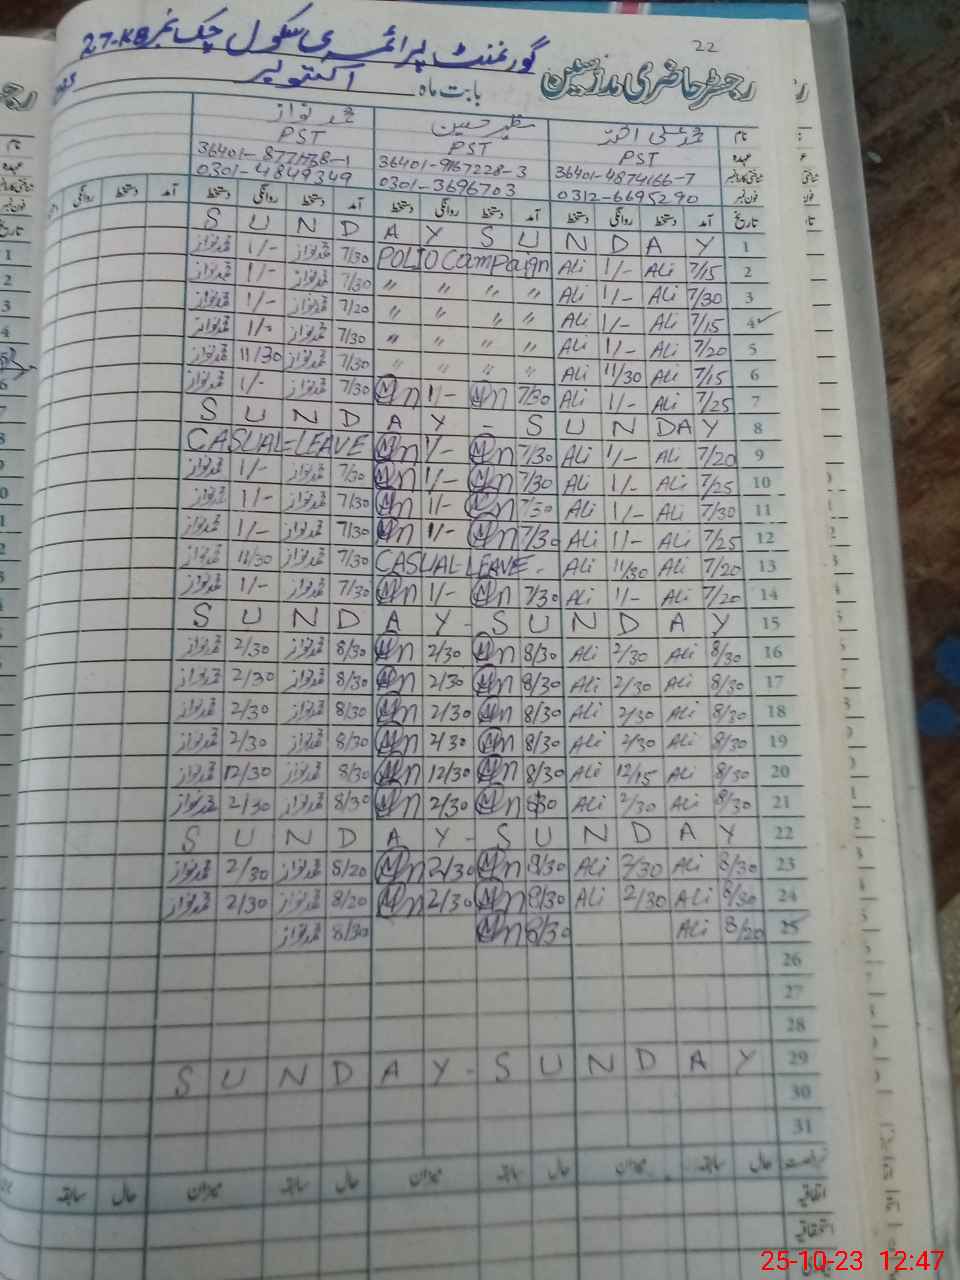 22
گورنمنٹ پرائمری سکول چک نمبر 27-KB
رجسٹر حاضری مدرسین بابت ماہ اکتوبر
نام محمد علی اختر مظہر حسین محمد نواز
عہدہ PST PST PST
36401-4874166-7 36401-9167228-3
0312-6695290 0301-3696703 0301-4849349
تاریخ آمد دستخط روانگی دستخط آمد دستخط روانگی دستخط آمد دستخط روانگی دستخط آمد دستخط روانگی دستخط
1 SUNDAY SUNDAY
2 7/15 Ali 1/- Ali POLIO Campaign 7/30 محمد نواز 1/- محمد نواز
3 7/30 Ali 1/- Ali 〃 〃 〃 〃 7/30 محمد نواز 1/- محمد نواز
4 7/15 Ali 1/- Ali 〃 〃 〃 〃 7/20 محمد نواز 1/- محمد نواز
5 7/20 Ali 1/- Ali 〃 〃 〃 〃 7/30 محمد نواز 1/- محمد نواز
6 7/15 Ali 11/30 Ali 〃 〃 〃 〃 7/30 محمد نواز 11/30 محمد نواز
7 7/25 Ali 1/- Ali 7/30 1/- 7/30 محمد نواز 1/- محمد نواز
8 SUNDAY - SUNDAY
9 7/20 Ali 1/- Ali 7/30 1/- CASUAL=LEAVE
10 7/25 Ali 1/- Ali 7/30 1/- 7/30 محمد نواز 1/- محمد نواز
11 7/30 Ali 1/- Ali 7/30 1/- 7/30 محمد نواز 1/- محمد نواز
12 7/25 Ali 1/- Ali 7/30 1/- 7/30 محمد نواز 1/- محمد نواز
13 7/20 Ali 11/30 Ali CASUAL-LEAVE- 7/30 محمد نواز 11/30 محمد نواز
14 7/20 Ali 1/- Ali 7/30 1/- 7/30 محمد نواز 1/- محمد نواز
15 SUNDAY - SUNDAY
16 8/30 Ali 2/30 Ali 8/30 2/30 8/30 محمد نواز 2/30 محمد نواز
17 8/30 Ali 2/30 Ali 8/30 2/30 8/30 محمد نواز 2/30 محمد نواز
18 8/30 Ali 2/30 Ali 8/30 2/30 8/30 محمد نواز 2/30 محمد نواز
19 8/30 Ali 2/30 Ali 8/30 2/30 8/30 محمد نواز 2/30 محمد نواز
20 8/30 Ali 12/15 Ali 8/30 12/30 8/30 محمد نواز 12/30 محمد نواز
21 8/30 Ali 2/30 Ali 8/30 2/30 8/30 محمد نواز 2/30 محمد نواز
22 SUNDAY - SUNDAY
23 8/30 Ali 2/30 Ali 8/30 2/30 8/20 محمد نواز 2/30 محمد نواز
24 8/30 Ali 2/30 Ali 8/30 2/30 8/20 محمد نواز 2/30 محمد نواز
25 8/20 Ali 8/30 8/30 محمد نواز
26
27
28
29 SUNDAY - SUNDAY
30
31
حال سابقہ میزان حال سابقہ میزان حال سابقہ میزان حال سابقہ
اتفاقیہ
25-10-23 12:47